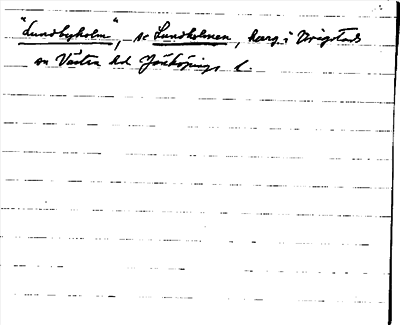 "Lundbyholm", se Lundholmen, herrg. i Vrigstads
sn Västra hd Jönköpings l.